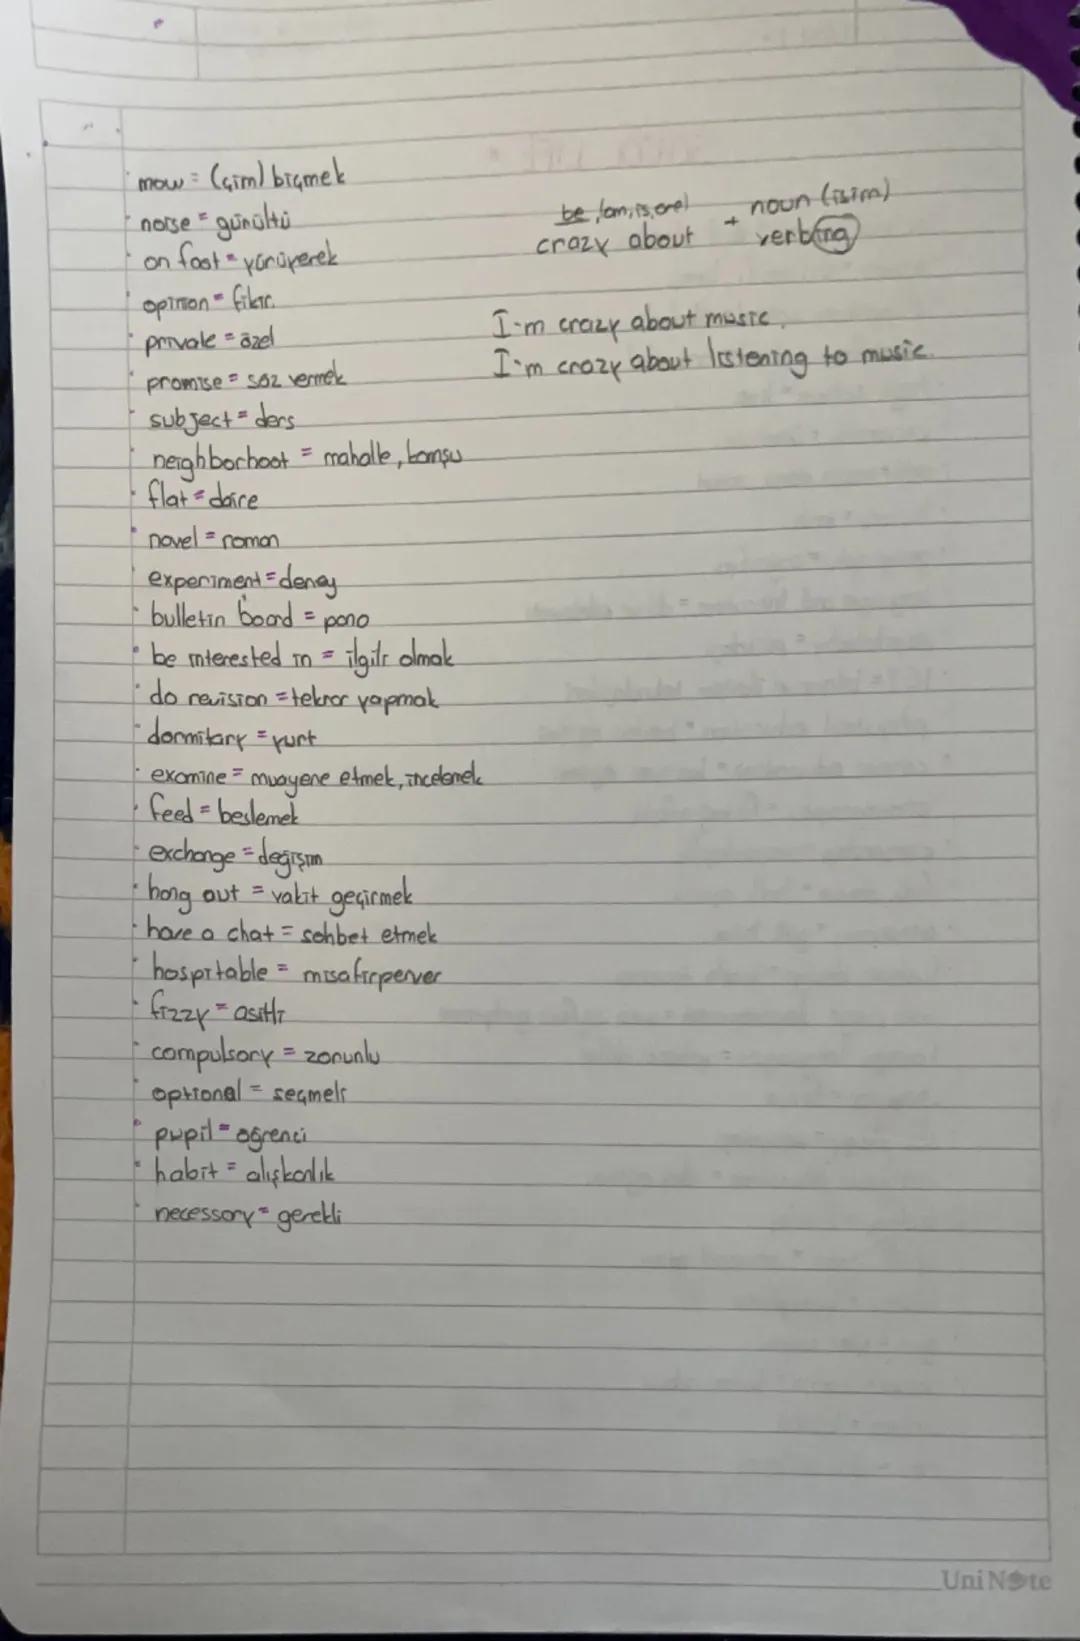 mow = (çim) biçmek
noise = gürültü
on foot = yürüyerek
opinion = fikir
private = özel
promise = söz vermek
subject = ders
neighborhoot = mahalle, komşu
flat = daire
novel = roman
experiment = deney
bulletin board = pano
be interested in = ilgili olmak
do revision = tekrar yapmak
dormitary = yurt
examine = muayene etmek, incelemek
feed = beslemek
exchange = değişim
hang out = vakit geçirmek
have a chat = sohbet etmek
hospitable = misafirperver
fizzy = asitli
compulsory = zorunlu
optional = seçmeli
pupil = öğrenci
habit = alışkanlık
necessary = gerekli
be (am, is, are)
crazy about + noun (isim)
verb(ing)
I'm crazy about music.
I'm crazy about listening to music.
UniNote